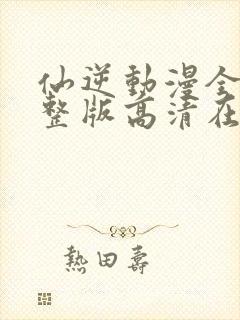 仙逆動漫全
整版高清在
熱田壽